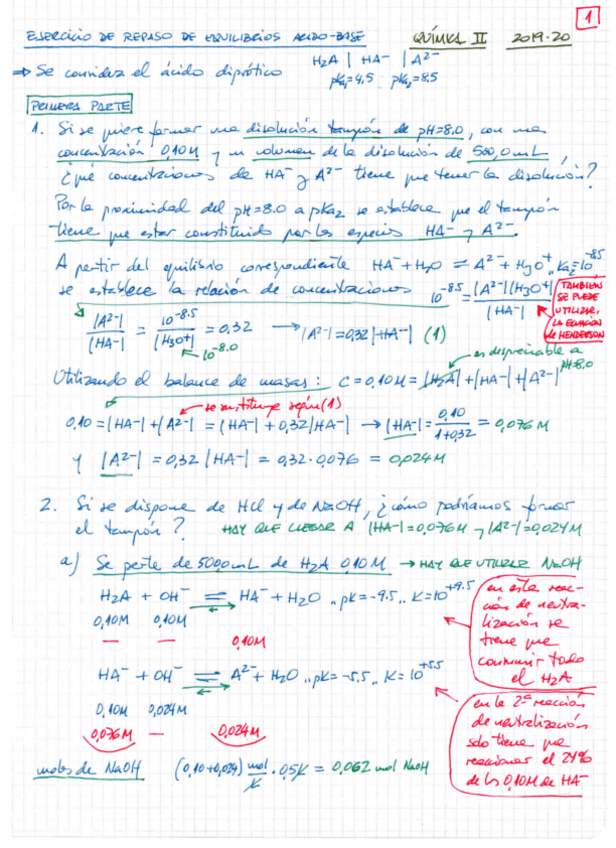 1
EJERCICIO DE REPASO DE EQUILIBRIOS ACIDO-BASE QUÍMICA II 2019-20
→ Se considera el ácido diprótico H₂A | HA⁻ | A²⁻
pKa₁=4,5 pKa₂=8,5
PRIMERA PARTE
1. Si se quiere formar una disolución tampón de pH=8.0, con una
concentración 0,10M y un volumen de la disolución de 500,0 mL,
¿qué concentraciones de HA⁻ y A²⁻ tiene que tener la disolución?
Por la proximidad del pH=8.0 a pKa₂ se establece que el tampón
tiene que estar constituido por las especies HA⁻ y A²⁻.
A partir del equilibrio correspondiente HA⁻ + H₂O ⇌ A²⁻ + H₃O⁺, Ka₂=10^-8.5
se establece la relación de concentraciones 10^-8.5 = |A²⁻||H₃O⁺| / |HA⁻|
TAMBIEN
SE PUEDE
UTILIZAR
LA ECUACIÓN
de HENDERSON
|A²⁻| / |HA⁻| = 10^-8.5 / |H₃O⁺| = 0,32 → |A²⁻| = 0,32 |HA⁻| (1)
10^-8.0
es despreciable a
pH=8,0
Utilizando el balance de masas: C = 0,10M = |H₂A| + |HA⁻| + |A²⁻|
se sustituye según (1)
0,10 = |HA⁻| + |A²⁻| = |HA⁻| + 0,32 |HA⁻| → |HA⁻| = 0,10 / 1+0,32 = 0,076M
y |A²⁻| = 0,32 |HA⁻| = 0,32·0,076 = 0,024M
2. Si se dispone de HCl y de NaOH, ¿cómo podríamos formar
el tampón? HAY QUE LLEGAR A |HA⁻|=0,076M y |A²⁻|=0,024M
a) Se parte de 500,0 mL de H₂A 0,10M → HAY QUE UTILIZAR NaOH
H₂A + OH⁻ ⇌ HA⁻ + H₂O ,, pK=-9.5 ,, K=10^+9.5
0,10M 0,10M
— — 0,10M
en esta reac-
ción de neutra-
lización se
tiene que
consumir todo
el H₂A
HA⁻ + OH⁻ ⇌ A²⁻ + H₂O ,, pK=-5.5 ,, K=10^+5.5
0,10M 0,024M
0,076M — 0,024M
en la 2ª reacción
de neutralización
solo tiene que
reaccionar el 24%
de los 0,10M de HA⁻
moles de NaOH (0,10+0,024) mol/L · 0,5L = 0,062 mol NaOH